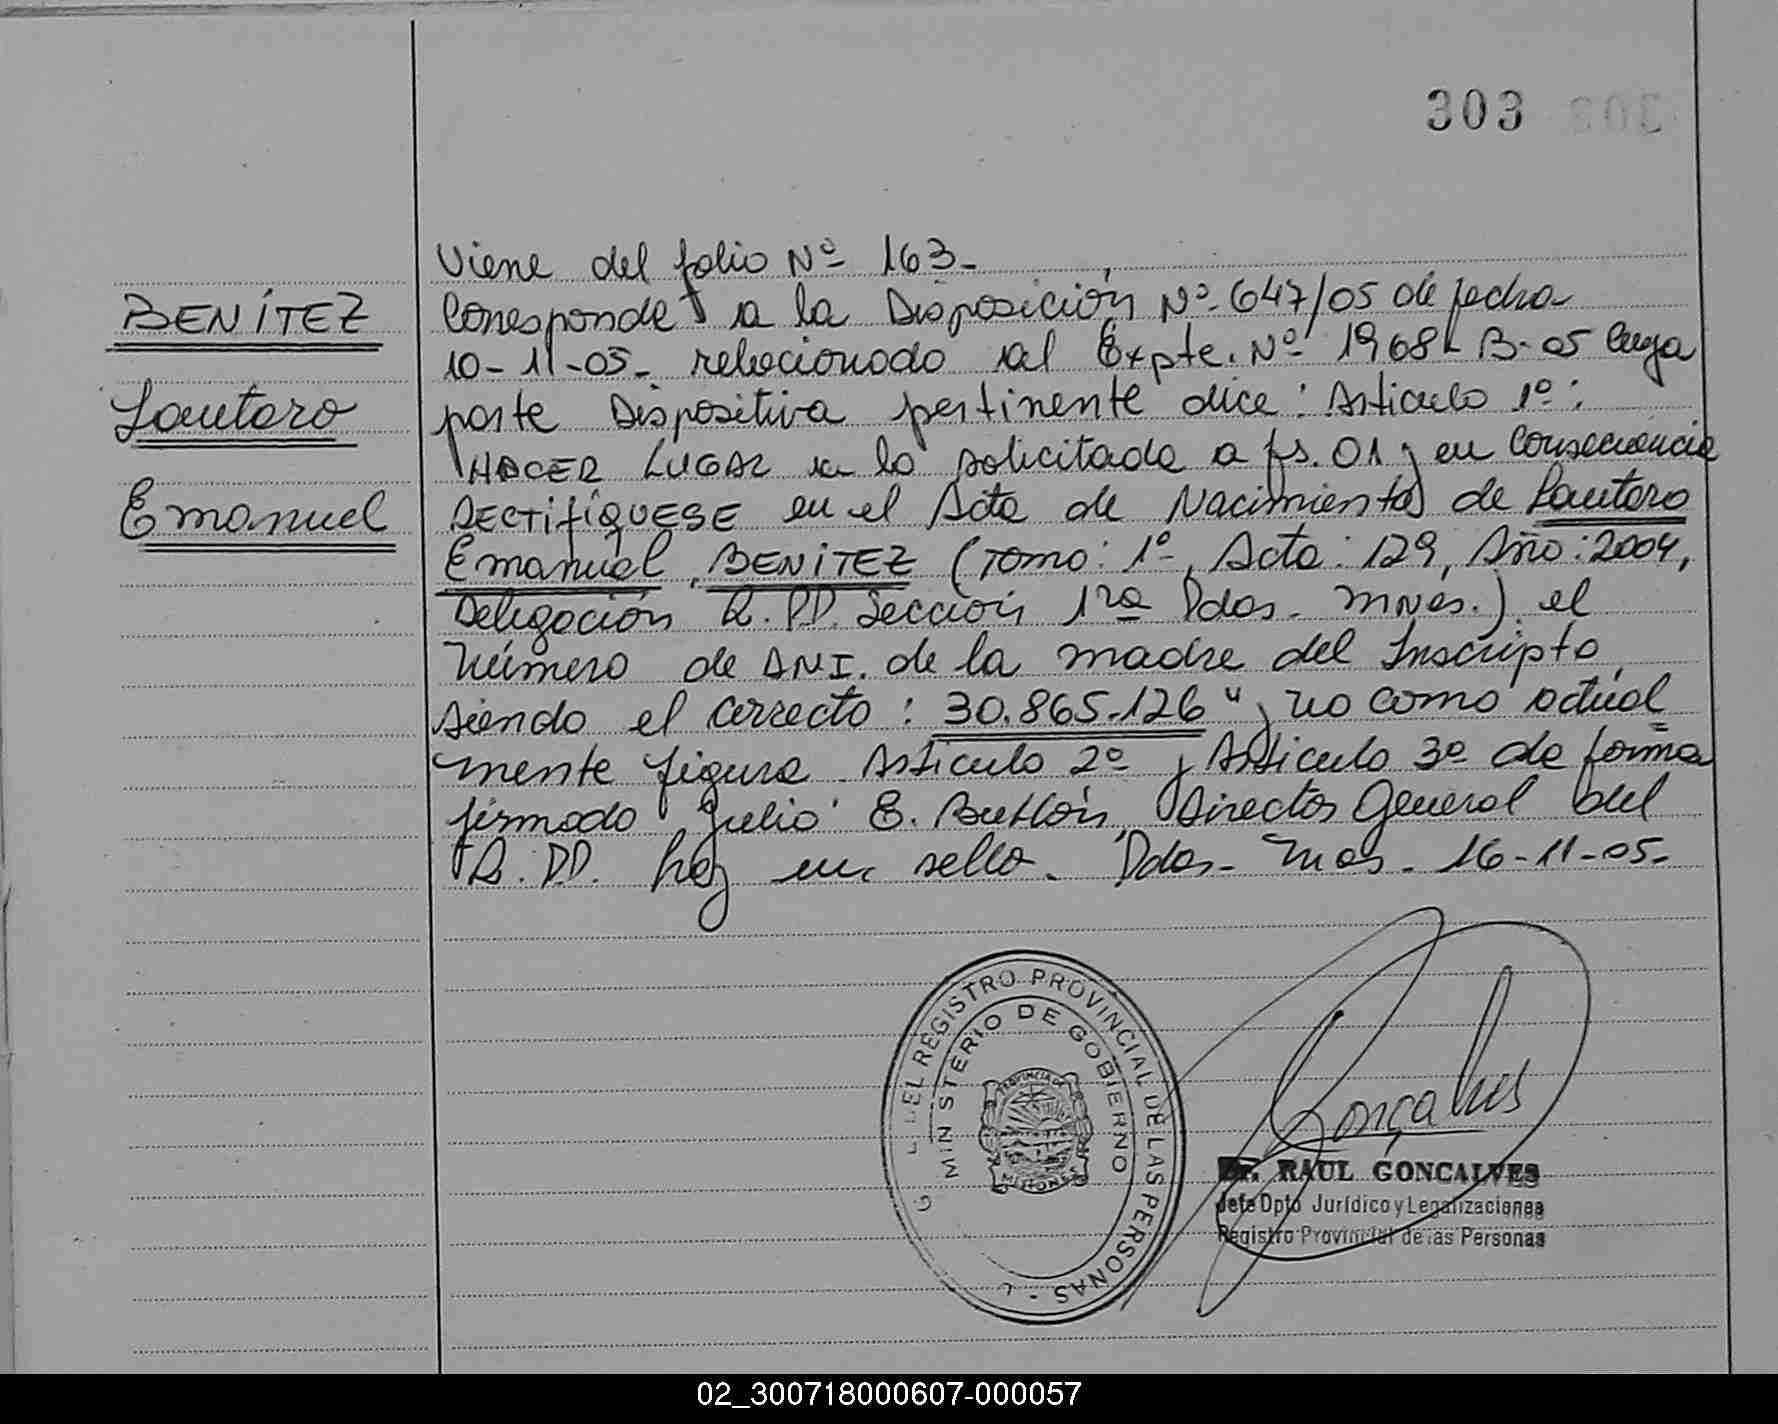 303
Viene del folio Nº 163.-
BENÍTEZ
Lautaro
Emanuel
Corresponde a la Disposición Nº 647/05 de fecha
10-11-05- relacionado al Expte. Nº 1968-B-05 cuya
parte Dispositiva pertinente dice: Articulo 1º:
HACER LUGAR a lo solicitado a fs. 01 y en consecuencia
RECTIFÍQUESE en el Acta de Nacimiento de Lautaro
Emanuel BENÍTEZ (Tomo: 1º, Acta: 129, Año: 2004,
Delegación R.PP. Sección 1ra Pdas. Mnes.) el
número de DNI. de la madre del Inscripto,
siendo el correcto: 30.865.126" y no como actual
mente figura. Articulo 2º y Articulo 3º de forma
firmado Julio E. Director General del
R.PP. hay un sello. Pdas- Mnes. 16-11-05-
REGISTRO PROVINCIAL DE LAS PERSONAS
MINISTERIO DE GOBIERNO
PROVINCIA DE
MISIONES
Gonçalves
Dr. RAUL GONCALVES
Jefe Dpto Jurídico y Legalizaciones
Registro Provincial de las Personas
02_300718000607-000057